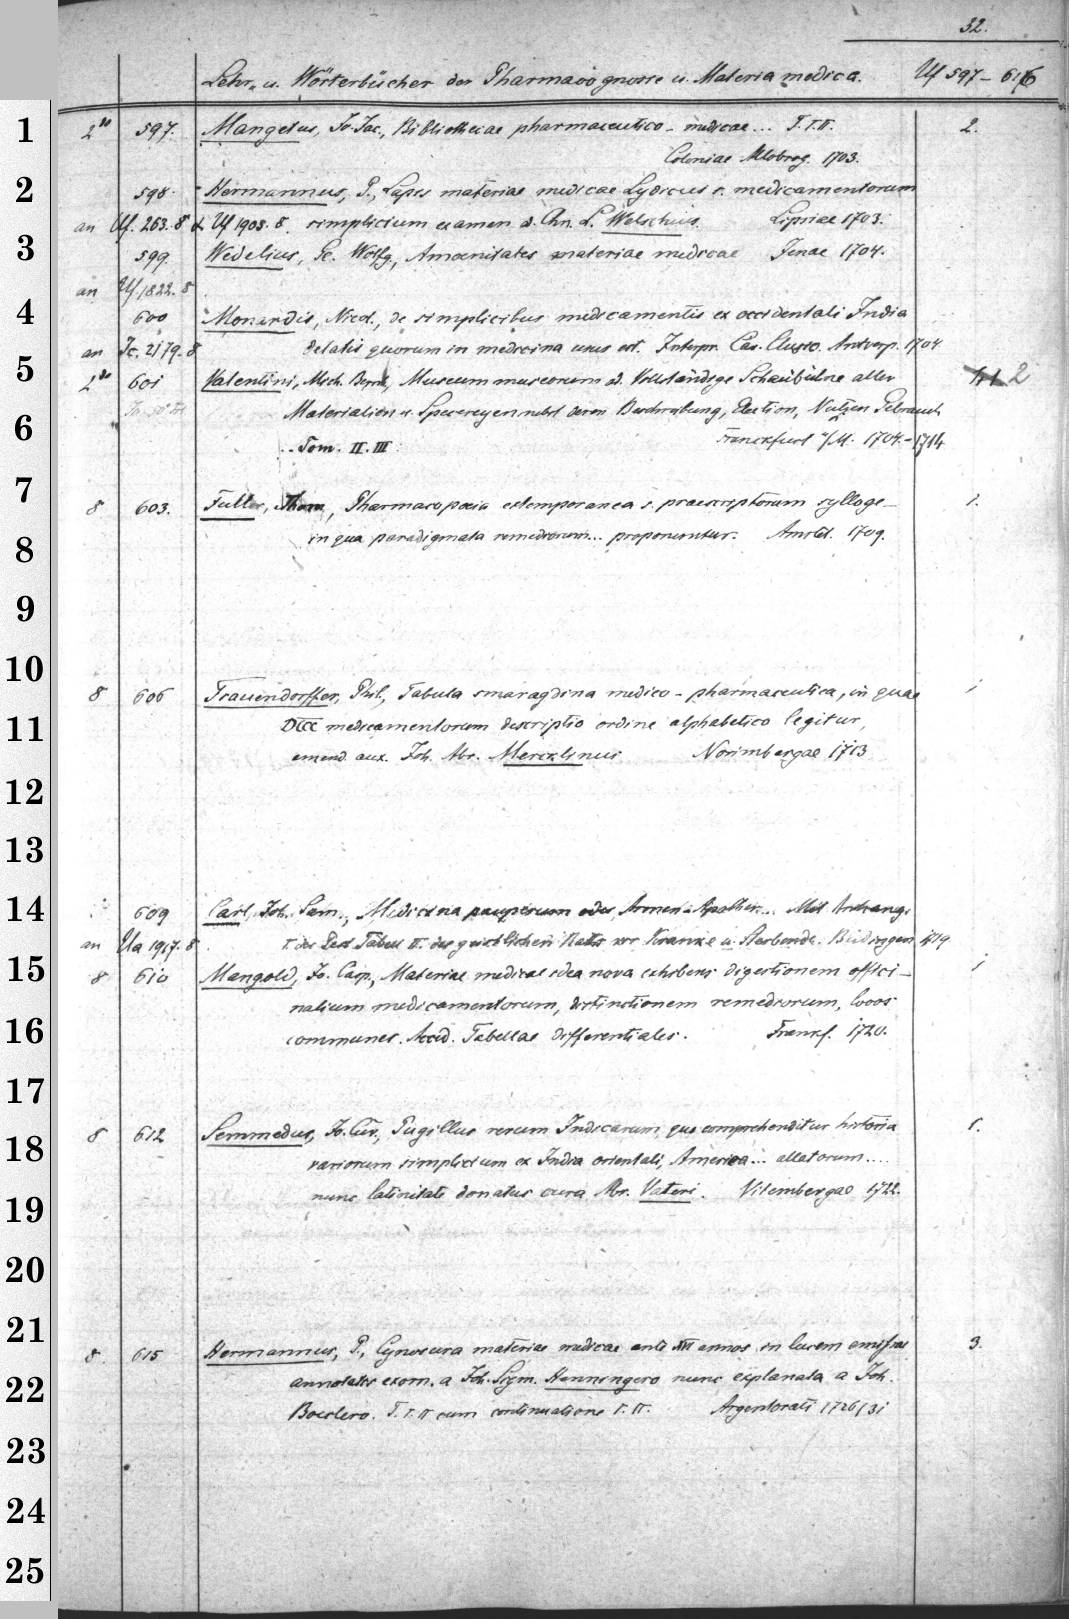 32.
Lehr. u. Wörterbücher der Pharmacognosie u. Materia medica. Uf 597 - 616
1 2to 597. Mangetus, Jo. Jac., Bibliothecae pharmaceutico-medicae... T. I. II. 2.
Coloniae Allobrog. 1703.
2 598. Hermannus, P., Lapis materiae medicae Lydicus s. medicamentorum
an Uf. 263. 8 & Uf 1908. 8. simplicium examen ed. Chn. L. Welschius. Lipsiae 1703.
3 599 Wedelius, Ge. Wolfg., Amoenitates materiae medicae Jenae 1704.
an Uf. 1822. 8
4 600 Monardis, Nicol., de simplicibus medicamentis ex occidentali India
an Jc. 2179. 8 delatis quorum in medicina usus est. Interpr. Car. Clusio. Antverp. 1704
5 2to 601 Valentini, Mich. Bernh., Museum museorum od. Vollständige Schaubühne aller 2
6 Materialien u. Specereyen nebst deren Beschreibung, Election, Nutzen Gebrauch
.. Tom. II. III. Franckfurt a/M. 1704.-1714
7 8 603. Fuller, Thom, Pharmacopoeia extemporanea s. praescriptorum sylloge- 1.
8 in qua paradigmata remediorum... proponuntur. Amstd. 1709.
9
10 8 606 Frauendorffer, Phil., Tabula smaragdina medico-pharmaceutica, in quae 1
11 DCCC medicamentorum descriptio ordine alphabetico legitur,
emend. aux. Joh. Abr. Mercklinus Norimbergae 1713
12
13
14 609 Carl, Joh. Sam., Medicina pauperum oder Armen-Apothec... Mit Anhang
an Ua 1917. 8. I. der Pest Tabell II. des geistlichen Raths vor Kranke u. Sterbende. Büdingen 1719
15 8 610 Mangold, Jo. Casp., Materiae medicae idea nova exhibens digestionem offici- 1
nalium medicamentorum, distinctionem remediorum, locos
16 communes. Accd. Tabellae differentiales. Frankf. 1720.
17
18 8 612 Semmedus, Jo. Cur., Pugillus rerum Indicarum quo comprehenditur historia 1.
variorum simplicium ex India orientali, America... allatorum....
19 nunc latinitate donatus cura Abr. Vateri. Vitembergae 1722.
20
21 8. 615 Hermannus, P., Cynosura materiae medicae ante XII annos in lucem emissa 3.
22 annotatis exorn. a Joh. Sigm. Henningero nunc explanata a Joh.
Boeclero. T. I. II cum continuatione I. II. Argentorati 1726/31
23
24
25